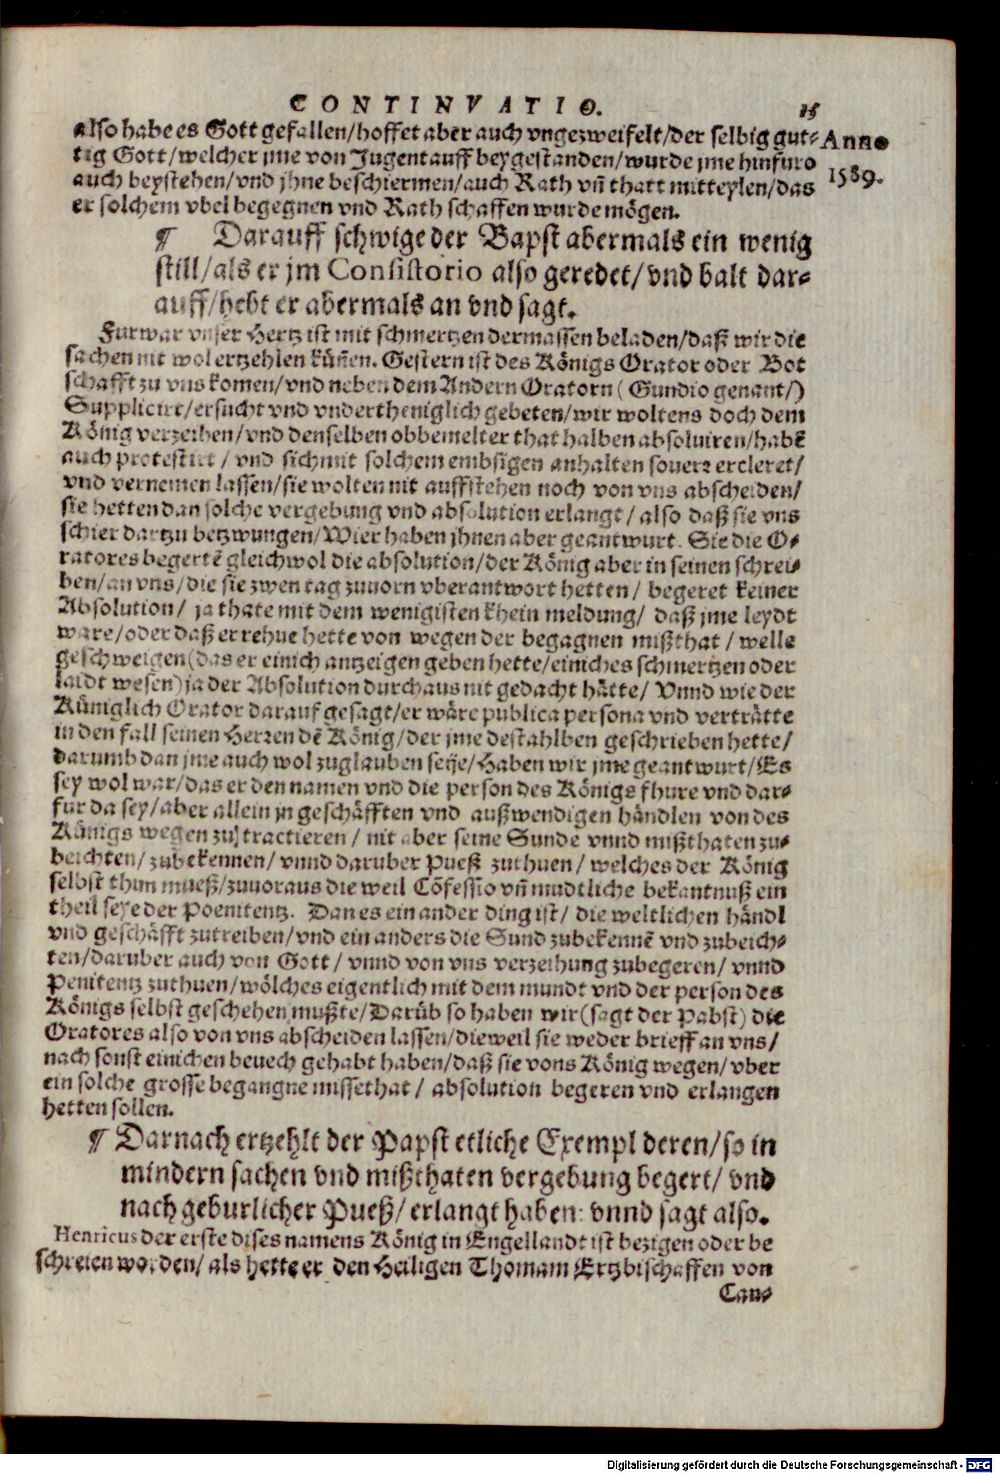 CONTINVATIO. 15
also habe es Gott gefallen/hoffet aber auch vngezweifelt/der selbig gut- Anno
tig Gott/welcher jme von Jugent auff beygestanden/wurde jme hinfuro
auch beystehen/vnd jhne beschiermen/auch Rath vñ thatt mitteylen/das 1589.
er solchem vbel begegnen vnd Rath schaffen wurde mögen.
¶ Darauff schwige der Bapst abermals ein wenig
still/als er jm Consistorio also geredet/vnd balt dar-
auff/hebt er abermals an vnd sagt.
Furwar vnser Hertz ist mit schmertzen dermassen beladen/daß wir die
sachen nit wol ertzehlen küñen. Gestern ist des Königs Orator oder Bot
schafft zu vns komen/vnd neben dem Andern Oratorn (Gundio genant/)
Supplicirt/ersucht vnd vndertheniglich gebeten/wir woltens doch dem
König verzeihen/vnd denselben obbemelter that halben absoluiren/habẽ
auch protestirt/ vnd sich mit solchem embsigen anhalten souerr ercleret/
vnd vernemen lassen/sie wolten nit auffstehen noch von vns abscheiden/
sie hetten dan solche vergebung vnd absolution erlangt/ also daß sie vns
schier dartzu betzwungen/Wier haben jhnen aber geantwurt. Sie die O-
ratores begertẽ gleichwol die absolution/der König aber in seinen schrei-
ben/an vns/die sie zwen tag zuuorn vberantwort hetten/ begeret keiner
Absolution/ ja thate mit dem wenigisten khein meldung/ daß jme leydt
ware/oder daß er rehue hette von wegen der begagnen mißthat/ welle
geschweigen(das er einich antzeigen geben hette/einiches schmertzen oder
laidt wesen)ja der Absolution durchaus nit gedacht hätte/ Vnnd wie der
Küniglich Orator darauf gesagt/er wäre publica persona vnd verträtte
in den fall seinen Herren dẽ König/der jme destahlben geschrieben hette/
darumb dan jme auch wol zuglauben seye/Haben wir jme geantwurt/Es
sey wol war/das er den namen vnd die person des Königs fhure vnd dar-
fur da sey/aber allein jn geschäfften vnd außwendigen händlen von des
Königs wegen zu tractieren/ nit aber seine Sunde vnnd mißthaten zu-
beichten/zubekennen/ vnnd daruber Pueß zuthuen/ welches der König
selbst thun mueß/zuuoraus die weil Cõfessio vñ mudtliche bekantnuß ein
theil seye der Poenitentz. Dan es ein ander ding ist/ die weltlichen händl
vnd geschäfft zutreiben/vnd ein anders die Sund zubekennẽ vnd zubeich-
ten/daruber auch von Gott/ vnnd von vns verzeihung zubegeren/ vnnd
Penitentz zuthuen/wölches eigentlich mit dem mundt vnd der person des
Königs selbst geschehen mußte/Darüb so haben wir(sagt der Pabst) die
Oratores also von vns abscheiden lassen/dieweil sie weder brieff an vns/
nach sonst einichen beuech gehabt haben/daß sie vons König wegen/vber
ein solche grosse begangne missethat/ absolution begeren vnd erlangen
hetten sollen.
¶ Darnach ertzehlt der Papst etliche Exempl deren/so in
mindern sachen vnd mißthaten vergebung begert/ vnd
nach geburlicher Pueß/erlangt haben: vnnd sagt also.
Henricus der erste dises namens König in Engellandt ist bezigen oder be
schreien worden/als hette er den Heiligen Thomam Ertzbischaffen von
Can-
Digitalisierung gefördert durch die Deutsche Forschungsgemeinschaft - DFG